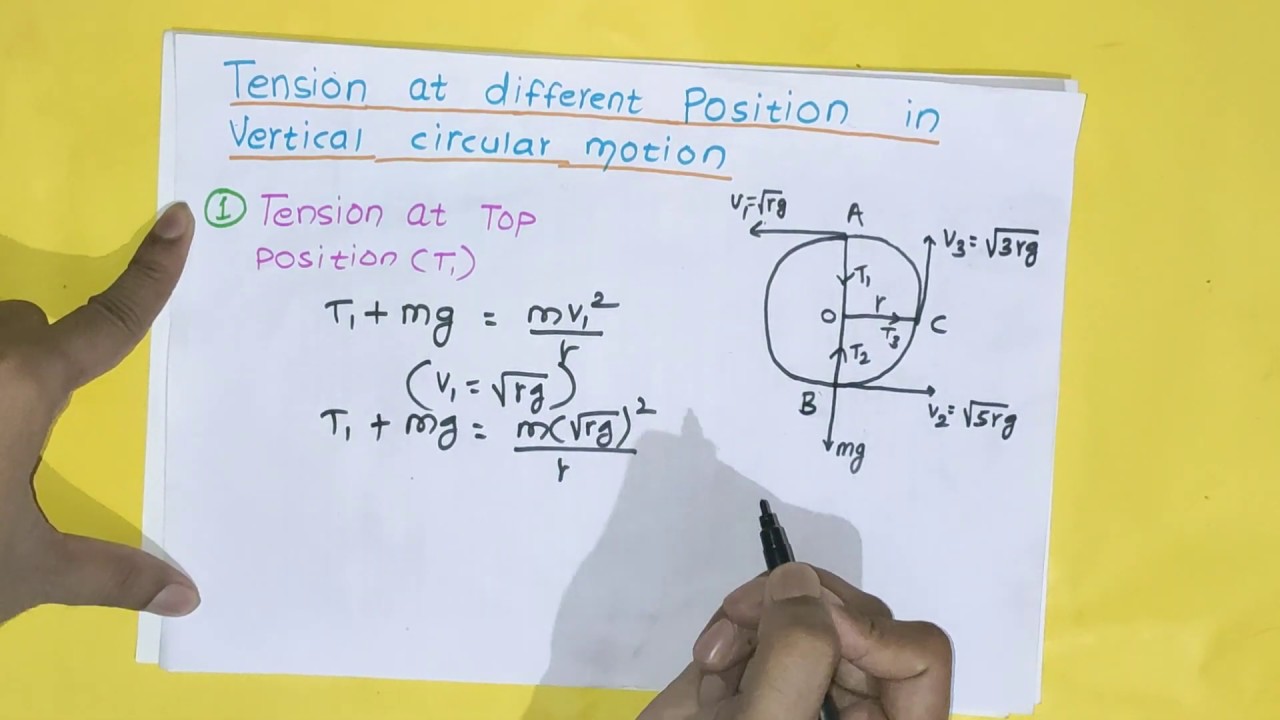 Tension at different Position in
Vertical circular motion
① Tension at TOP
Position (T₁)
T₁ + mg = mv₁²/r
(v₁ = √rg)
T₁ + mg = m(√rg)²/r
v₁=√rg
A
v₃=√3rg
T₁
r
O
C
T₃
T₂
B
v₂=√5rg
mg